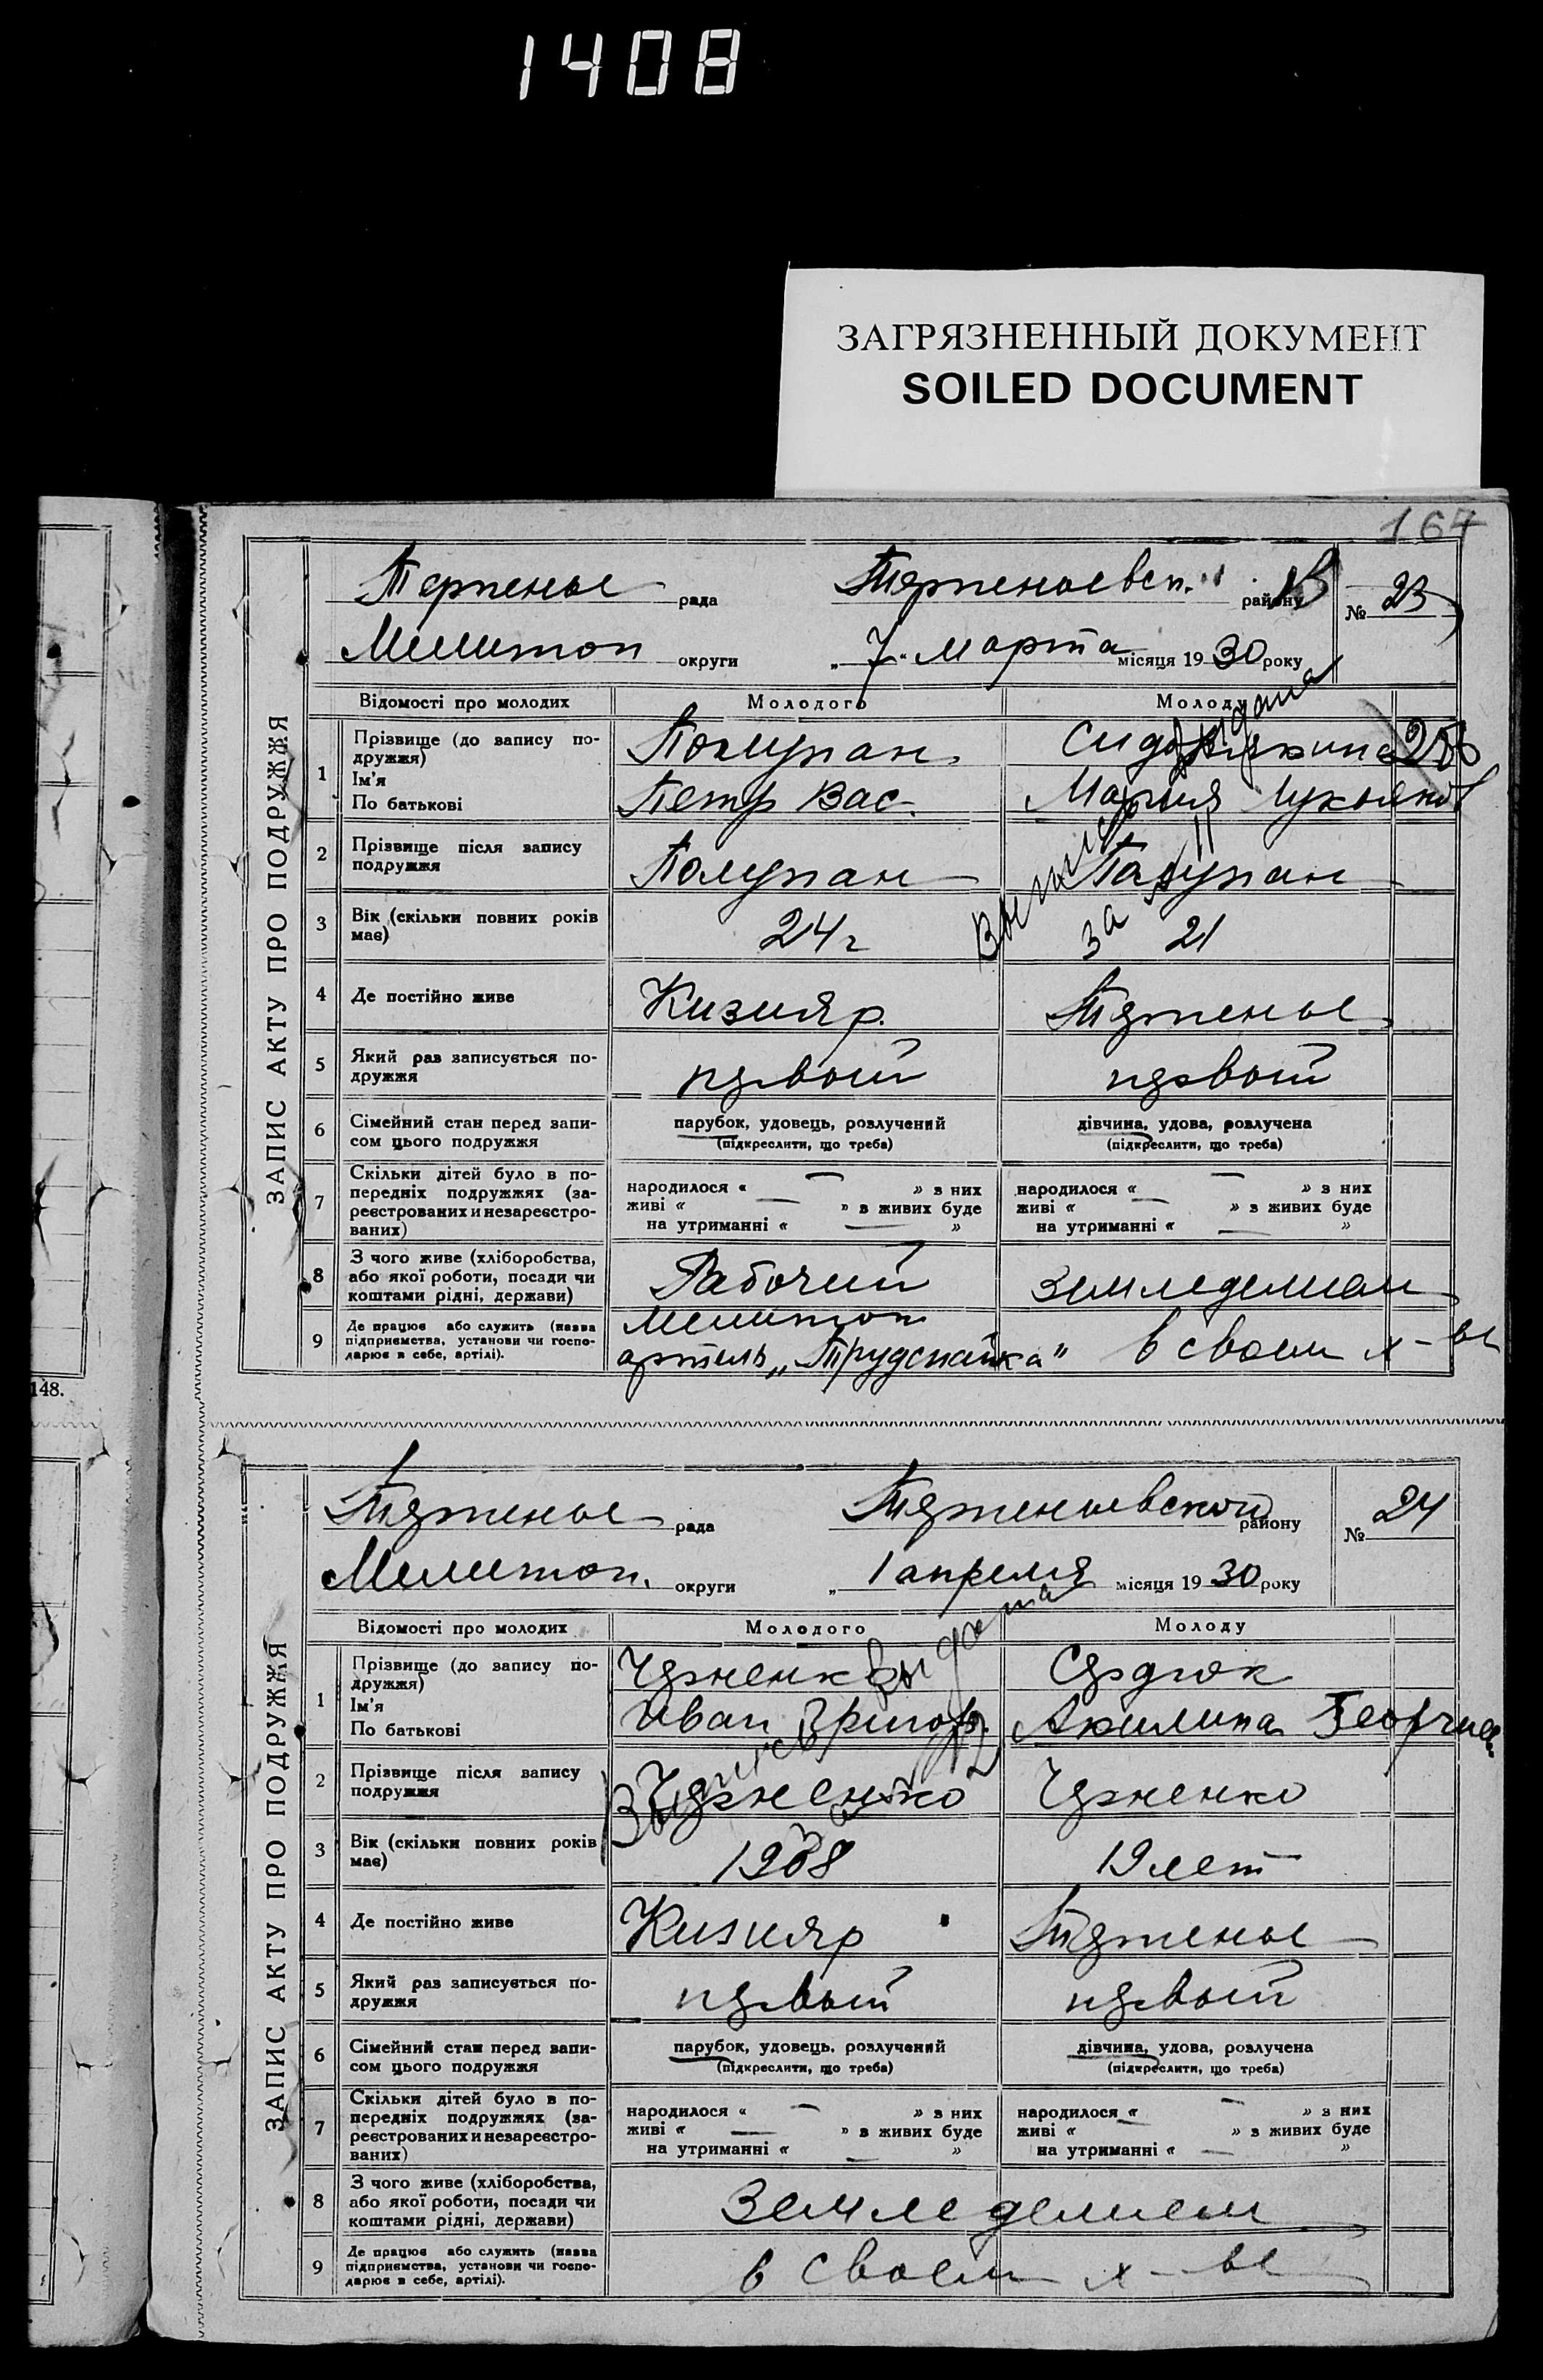 1408
ЗАГРЯЗНЕННЫЙ ДОКУМЕНТ
SOILED DOCUMENT
167
ЗАПИС АКТУ ПРО ПОДРУЖЖЯ
Терпенье рада Терпеньевск. району № 23
Мелитоп округи „7" марта місяця 1930 року
Відомості про молодих Молодого Молоду
1 Прізвище (до запису по-
дружжя)
Ім'я
По батькові
Полупан
Петр Вас.
Мария Лукьянов
2 Прізвище після запису
подружжя
Полупан Полупан
3 Вік (скільки повних років
має)
24 г 21
Выпись выдана
за №
4 Де постійно живе Кизияр. Терпенье
5 Який раз записується по-
дружжя
первый первый
6 Сімейний стан перед запи-
сом цього подружжя
парубок, удовець, розлучений
(підкреслити, що треба)
дівчина, удова, розлучена
(підкреслити, що треба)
7 Скільки дітей було в по-
передніх подружжях (за-
реєстрованих и незареєстро-
ваних)
народилося « — » з них
живі « — » з живих буде
на утриманні « — »
народилося « — » з них
живі « — » з живих буде
на утриманні « — »
8 З чого живе (хліборобства,
або якої роботи, посади чи
коштами рідні, держави)
Рабочий земледелием
9 Де працює або служить (назва
підприємства, установи чи госпо-
дарює в себе, артілі).
Мелитоп
артель „Трудспайка" в своем х-ве
148.
ЗАПИС АКТУ ПРО ПОДРУЖЖЯ
Терпенье рада Терпеньевского району № 24
Мелитоп. округи „1 апреля місяця 1930 року
Відомості про молодих Молодого Молоду
1 Прізвище (до запису по-
дружжя)
Ім'я
По батькові
Сердюк
Иван Григор. Акилина Георгиев.
2 Прізвище після запису
подружжя
3 Вік (скільки повних років
має)
1908 19 лет
Выпись выдана
за №
4 Де постійно живе Кизияр Терпенье
5 Який раз записується по-
дружжя
первый первый
6 Сімейний стан перед запи-
сом цього подружжя
парубок, удовець, розлучений
(підкреслити, що треба)
дівчина, удова, розлучена
(підкреслити, що треба)
7 Скільки дітей було в по-
передніх подружжях (за-
реєстрованих и незареєстро-
ваних)
народилося « — » з них
живі « — » з живих буде
на утриманні « — »
народилося « — » з них
живі « — » з живих буде
на утриманні « — »
8 З чого живе (хліборобства,
або якої роботи, посади чи
коштами рідні, держави)
Земледелием
9 Де працює або служить (назва
підприємства, установи чи госпо-
дарює в себе, артілі).
в своем х-ве